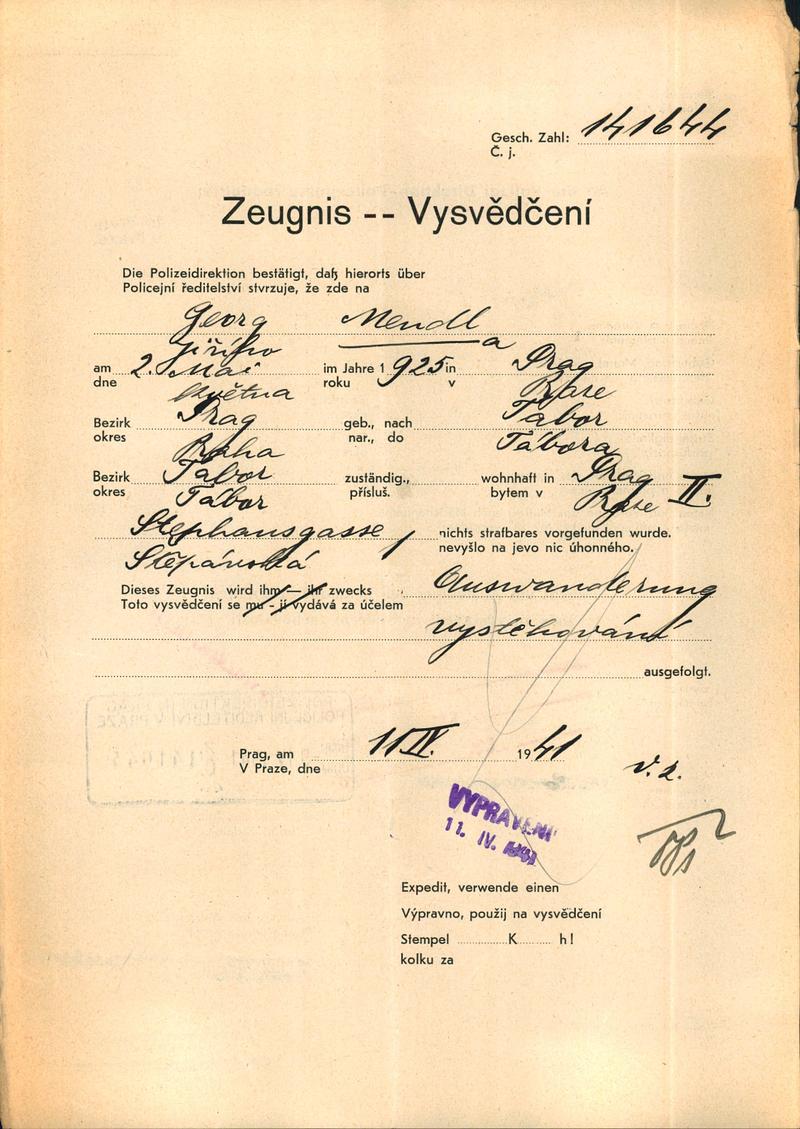 Gesch. Zahl: 141644
Č. j.
Zeugnis -- Vysvědčení
Die Polizeidirektion bestätigt, daß hierorts über
Policejní ředitelství stvrzuje, že zde na
Georg Mendl
Jiřího a
am 2. Mai im Jahre 1925 in Prag
dne května roku v Praze
Bezirk Prag geb., nach Tabor
okres Praha nar., do Tábora
Bezirk Tabor zuständig., wohnhaft in Prag II.
okres Tábor přísluš. bytem v Praze
Stephansgasse nichts strafbares vorgefunden wurde.
Štěpánská nevyšlo na jevo nic úhonného.
Dieses Zeugnis wird ihm — ihr zwecks Auswanderung
Toto vysvědčení se mu - jí vydává za účelem
vystěhování
ausgefolgt.
Prag, am 11 IV. 1941
V Praze, dne
VYPRAVENO
11. IV. 1941
Expedit, verwende einen
Výpravno, použij na vysvědčení
Stempel K h!
kolku za